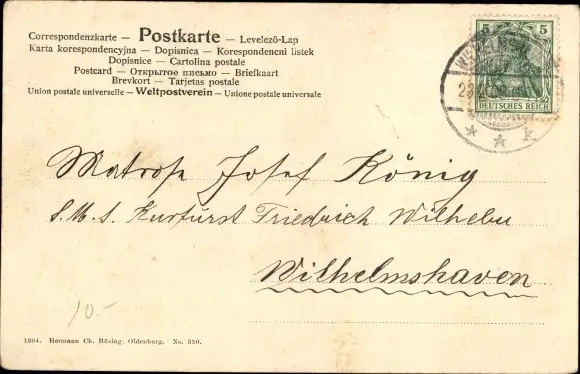 Correspondenzkarte — Postkarte — Levelező-Lap
Karta korespondencyjna — Dopisnica — Korespondencni listek
Dopisnice — Cartolina postale
Postcard — Открытое письмо — Briefkaart
Brevkort — Tarjetas postale
Union postale universelle — Weltpostverein — Unione postale universale
5 5
DEUTSCHES REICH
Matrose Josef König
S.M.S. Kurfürst Friedrich Wilhelm
Wilhelmshaven
10.-
1904. Hermann Ch. Büsing, Oldenburg. No. 330.